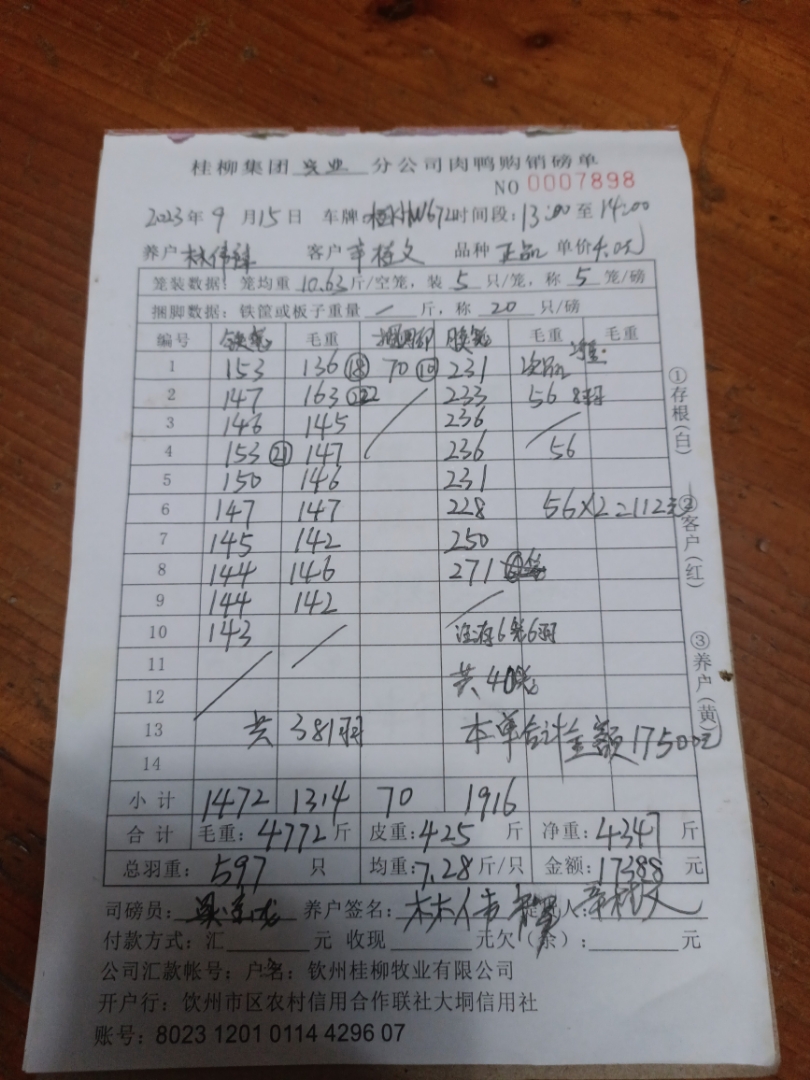 桂柳集团实业分公司肉鸭购销磅单
NO 0007898
2023年9月15日 车牌 W672 时间段：13:00至14:00
养户 林伟 客户 辛桂文 品种 正品 单价4.0元
笼装数据：笼均重 10.63 斤/空笼，装 5 只/笼，称 5 笼/磅
捆脚数据：铁筐或板子重量 / 斤，称 20 只/磅
编号 毛重 捆脚 胶笼 毛重 毛重
1 153 136 ⑱ 70 ⑩ 231 次品
2 147 163 ㉒ 233 56 8羽
3 146 145 236
4 153 ㉑ 147 236 56
5 150 146 231
6 147 147 228 56×2=112元
7 145 142 250
8 144 146 271
9 144 142
10 143 注:存6笼6羽
11
12 共40笼
13 共381羽 本单合计金额17500元
14
小计 1472 1314 70 1916
合计 毛重：4772斤 皮重：425斤 净重：4347斤
总羽重：597只 均重：7.28斤/只 金额：17388元
司磅员： 养户签名： 人：辛桂文
付款方式：汇 元 收现 元欠（余）： 元
公司汇款帐号：户名：钦州桂柳牧业有限公司
开户行：钦州市区农村信用合作联社大垌信用社
账号：8023 1201 0114 4296 07
①存根（白）
②客户（红）
③养户（黄）